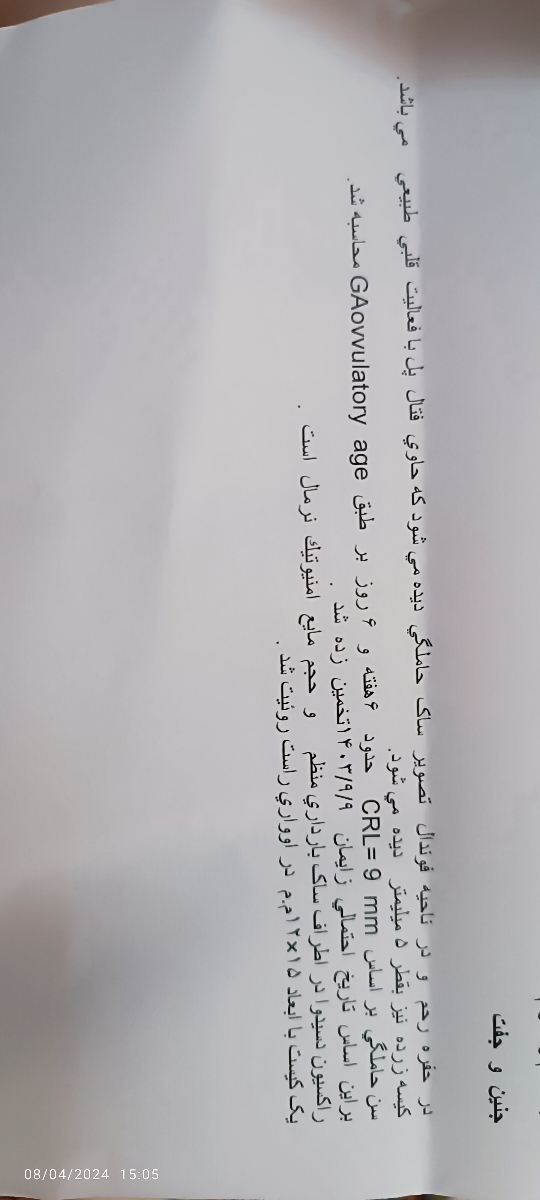 جنين و جفت
در حفره رحم و در ناحيه فوندال تصوير ساك حاملگي ديده مي شود كه حاوي فتال پل با فعاليت قلبي طبيعي مي باشد.
كيسه زرده نيز بقطر ۵ ميليمتر ديده مي شود.
سن حاملگي بر اساس CRL= 9 mm حدود ۶هفته و ۶ روز بر طبق GAovvulatory age محاسبه شد.
براين اساس تاريخ احتمالي زايمان ۱۴۰۳/۹/۹تخمين زده شد .
راكسيون دسيدوا در اطراف ساك بارداري منظم و حجم مايع امنيوتيك نرمال است .
يک كيست با ابعاد ۱۵×۱۲م.م در اوواري راست روئيت شد .
08/04/2024 15:05